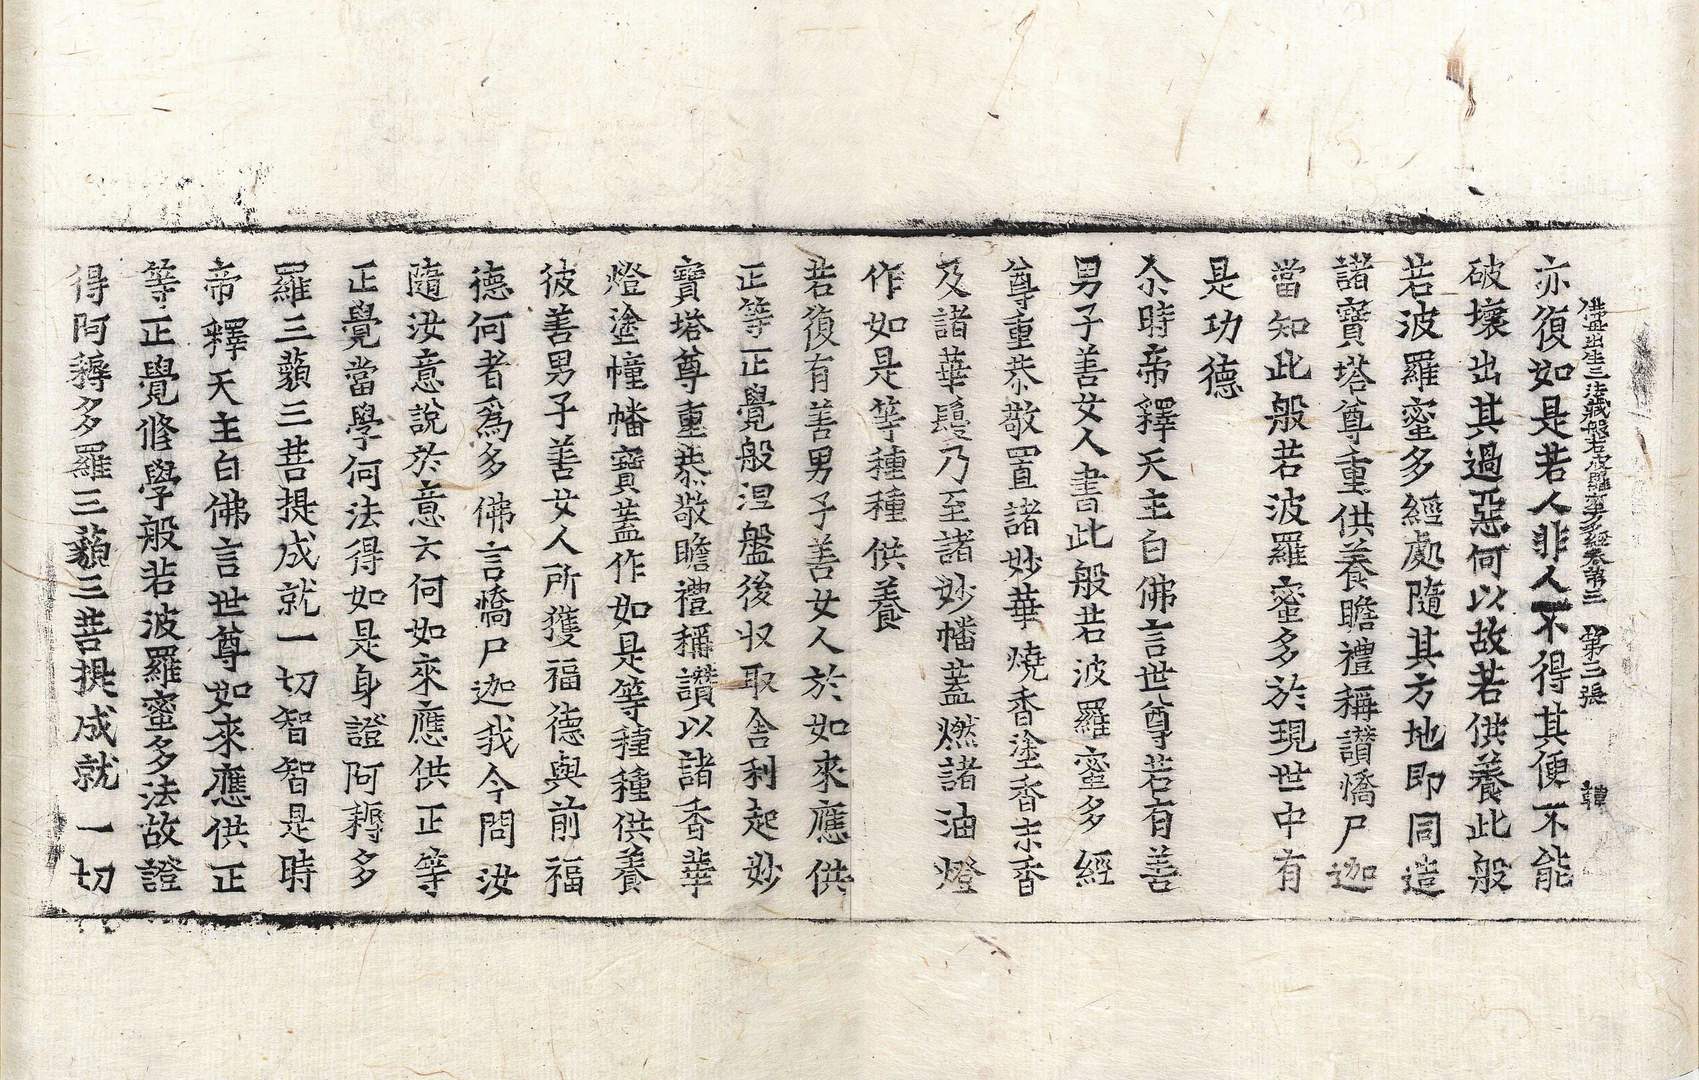 佛母出生三法藏般若波羅蜜多經卷第三 第三張 韓
亦復如是若人非人不得其便不能
破壞出其過惡何以故若供養此般
若波羅蜜多經處隨其方地即同造
諸寶塔尊重供養瞻禮稱讃憍尸迦
當知此般若波羅蜜多於現世中有
是功德
尒時帝釋天主白佛言世尊若有善
男子善女人書此般若波羅蜜多經
尊重恭敬置諸妙華燒香塗香末香
及諸華鬘乃至諸妙幡蓋燃諸油燈
作如是等種種供養
若復有善男子善女人於如來應供
正等正覺般涅盤後収取舍利起妙
寶塔尊重恭敬瞻禮稱讃以諸香華
燈塗幢幡寶蓋作如是等種種供養
彼善男子善女人所獲福德與前福
德何者爲多佛言憍尸迦我今問汝
隨汝意說於意云何如來應供正等
正覺當學何法得如是身證阿耨多
羅三藐三菩提成就一切智智是時
帝釋天主白佛言世尊如來應供正
等正覺修學般若波羅蜜多法故證
得阿耨多羅三藐三菩提成就一切